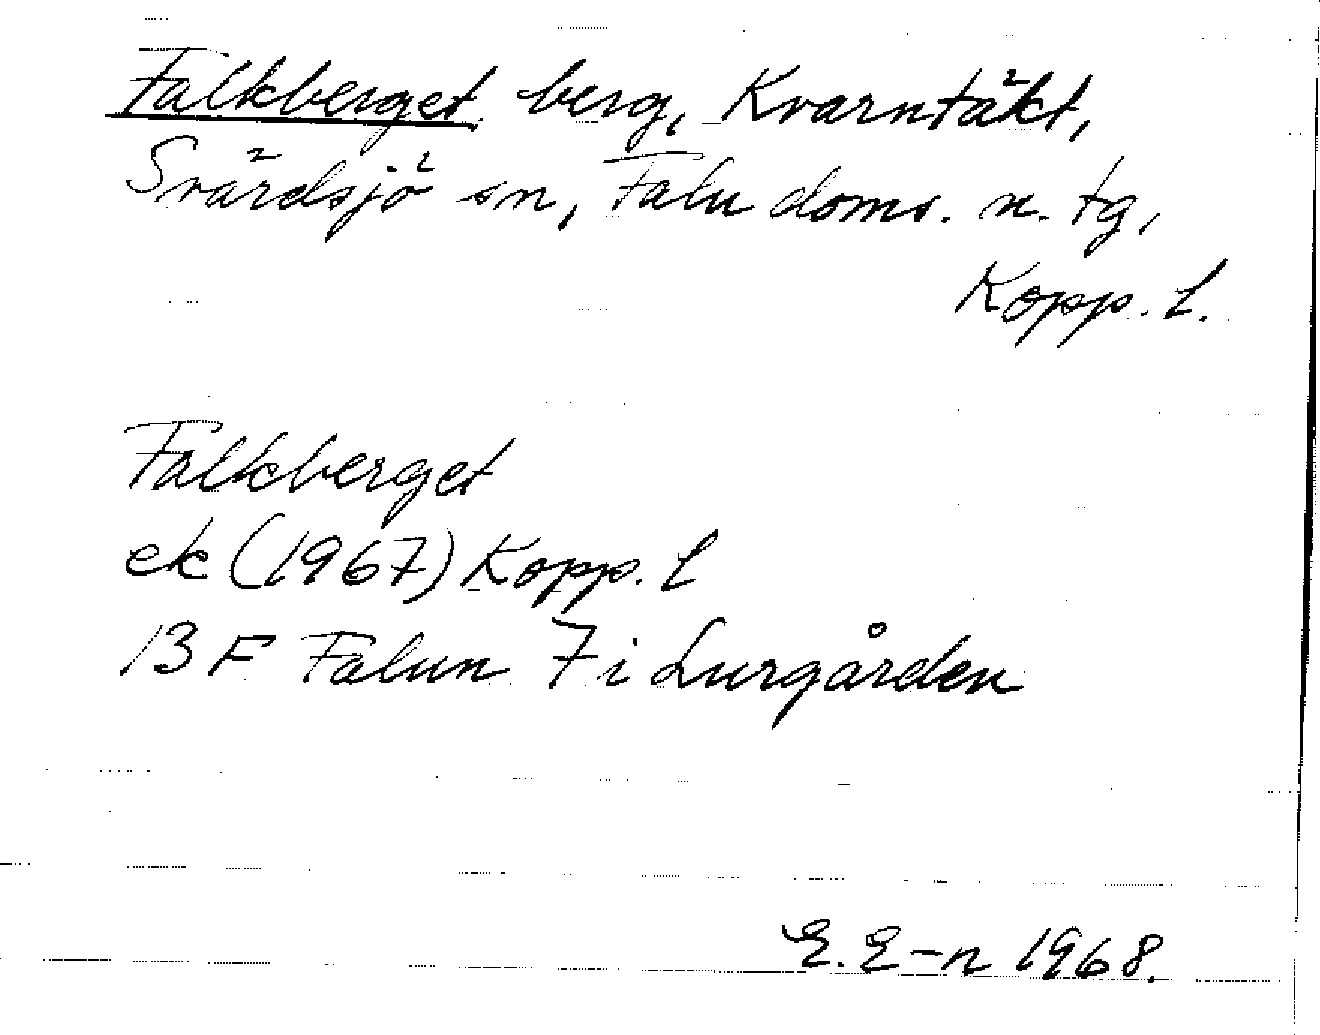 Falkberget berg, Kvarntäkt,
Svärdsjö sn, Falu doms. n. tg,
Kopp. L.
Falkberget
ek (1967) Kopp. L
13 F Falun 7 i Lurgården
E. E-n 1968.